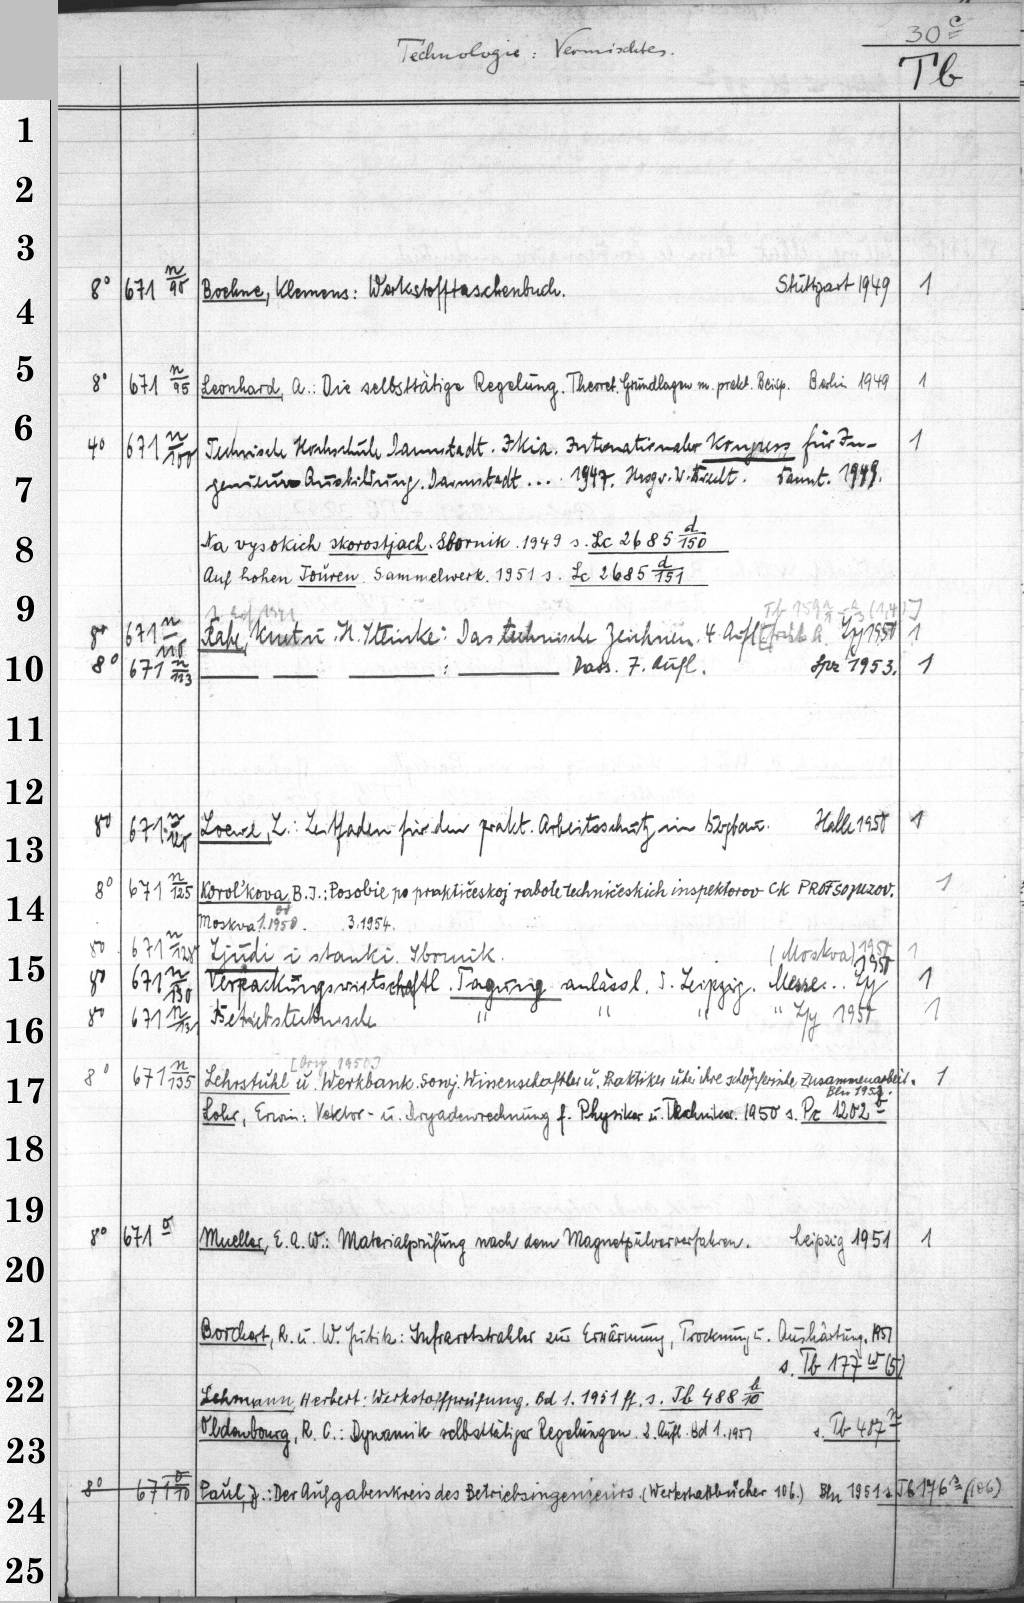 Technologie: Vermischtes.
30 c
Tb
1
2
3
8° 671 n/90 Boehne, Klemens: Werkstofftaschenbuch. Stuttgart 1949 1
4
5
8° 671 n/95 Leonhard, A.: Die selbsttätige Regelung. Theoret. Grundlagen m. prakt. Beisp. Berlin 1949 1
6
4° 671 n/100 Technische Hochschule Darmstadt. Ikia. Internationaler Kongress für In-
genieur-Ausbildung. Darmstadt ... 1947. Hrsgr. Darmst. 1949.
7
Na vysokich skorostjach. Sbornik. 1949 s. Lc 2685 d/150
8
Auf hohen Touren. Sammelwerk. 1951 s. Lc 2685 d/151
9
8° 671 n/110 u. H. Steinke: Das technische Zeichnen. 4. Aufl. Lpz 1950 1
8° 671 n/113 — — — : — Dass. 7. Aufl. Lpz 1953. 1
10
11
12
8° 671 n/120 Loewe, L.: Leitfaden für den prakt. Arbeitsschutz im Bergbau. Halle 1950 1
13
8° 671 n/125 Korol'kova, B.I.: Posobie po praktičeskoj rabote techničeskich inspektorov CK PROFsojuzov. 1
14
Moskva 1.1950. 3.1954.
8° 671 n/128 Ljudi i stanki. Sbornik. (Moskva) 1950 1
15
8° 671 n/130 Verpackungswirtschaftl. Tagung anlässl. d. Leipzig. Messe.. Lpz 1950 1
8° 671 n/131 Betriebstechnische " " " " Lpz 1950 1
16
[Orig. 1950]
8° 671 n/135 Lehrstuhl u. Werkbank. Sowj. Wissenschaftler u. Praktiker über ihre schöpferische Zusammenarbeit. 1
17
Bln 1952.
Lohr, Erwin: Vektor- u. Dyadenrechnung f. Physiker u. Techniker. 1950 s. Pc 1202 o
18
19
8° 671 o Mueller, E.A.W.: Materialprüfung nach dem Magnetpulververfahren. Leipzig 1951 1
20
21
Borchert, R. u. W. Jubitz: Infrarotstrahler zur Erwärmung, Trocknung u. Aushärtung. 1951
s. Tb 177 w (5)
22
Lehmann, Herbert: Werkstoffprüfung. Bd 1. 1951 ff. s. Tb 488 b/10
Oldenbourg, R. C.: Dynamik selbsttätiger Regelungen. 2. Aufl. Bd 1. 1951 s. Tb 407 n
23
8° 671 o/10 Paul, J.: Der Aufgabenkreis des Betriebsingenieurs. (Werkstattbücher 106.) Bln 1951 s. Tb 176 z (106)
24
25